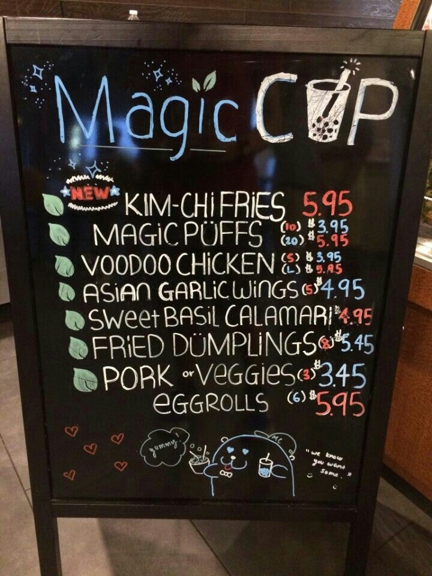 Magic CUP
NEW
KIM-CHI FRIES 5.95
MAGIC PÜFFS (10) $3.95
(20) $5.95
VOODOO CHICKEN (S) $3.95
(L) $5.95
ASIAN GARLIC WINGS (5) $4.95
SWEET BASIL CALAMARI $4.95
FRIED DÜMPLINGS (8) $5.45
PORK or VEGGIES (3) $3.45
EGGROLLS (6) $5.95
yummy
"we know
you want
some."